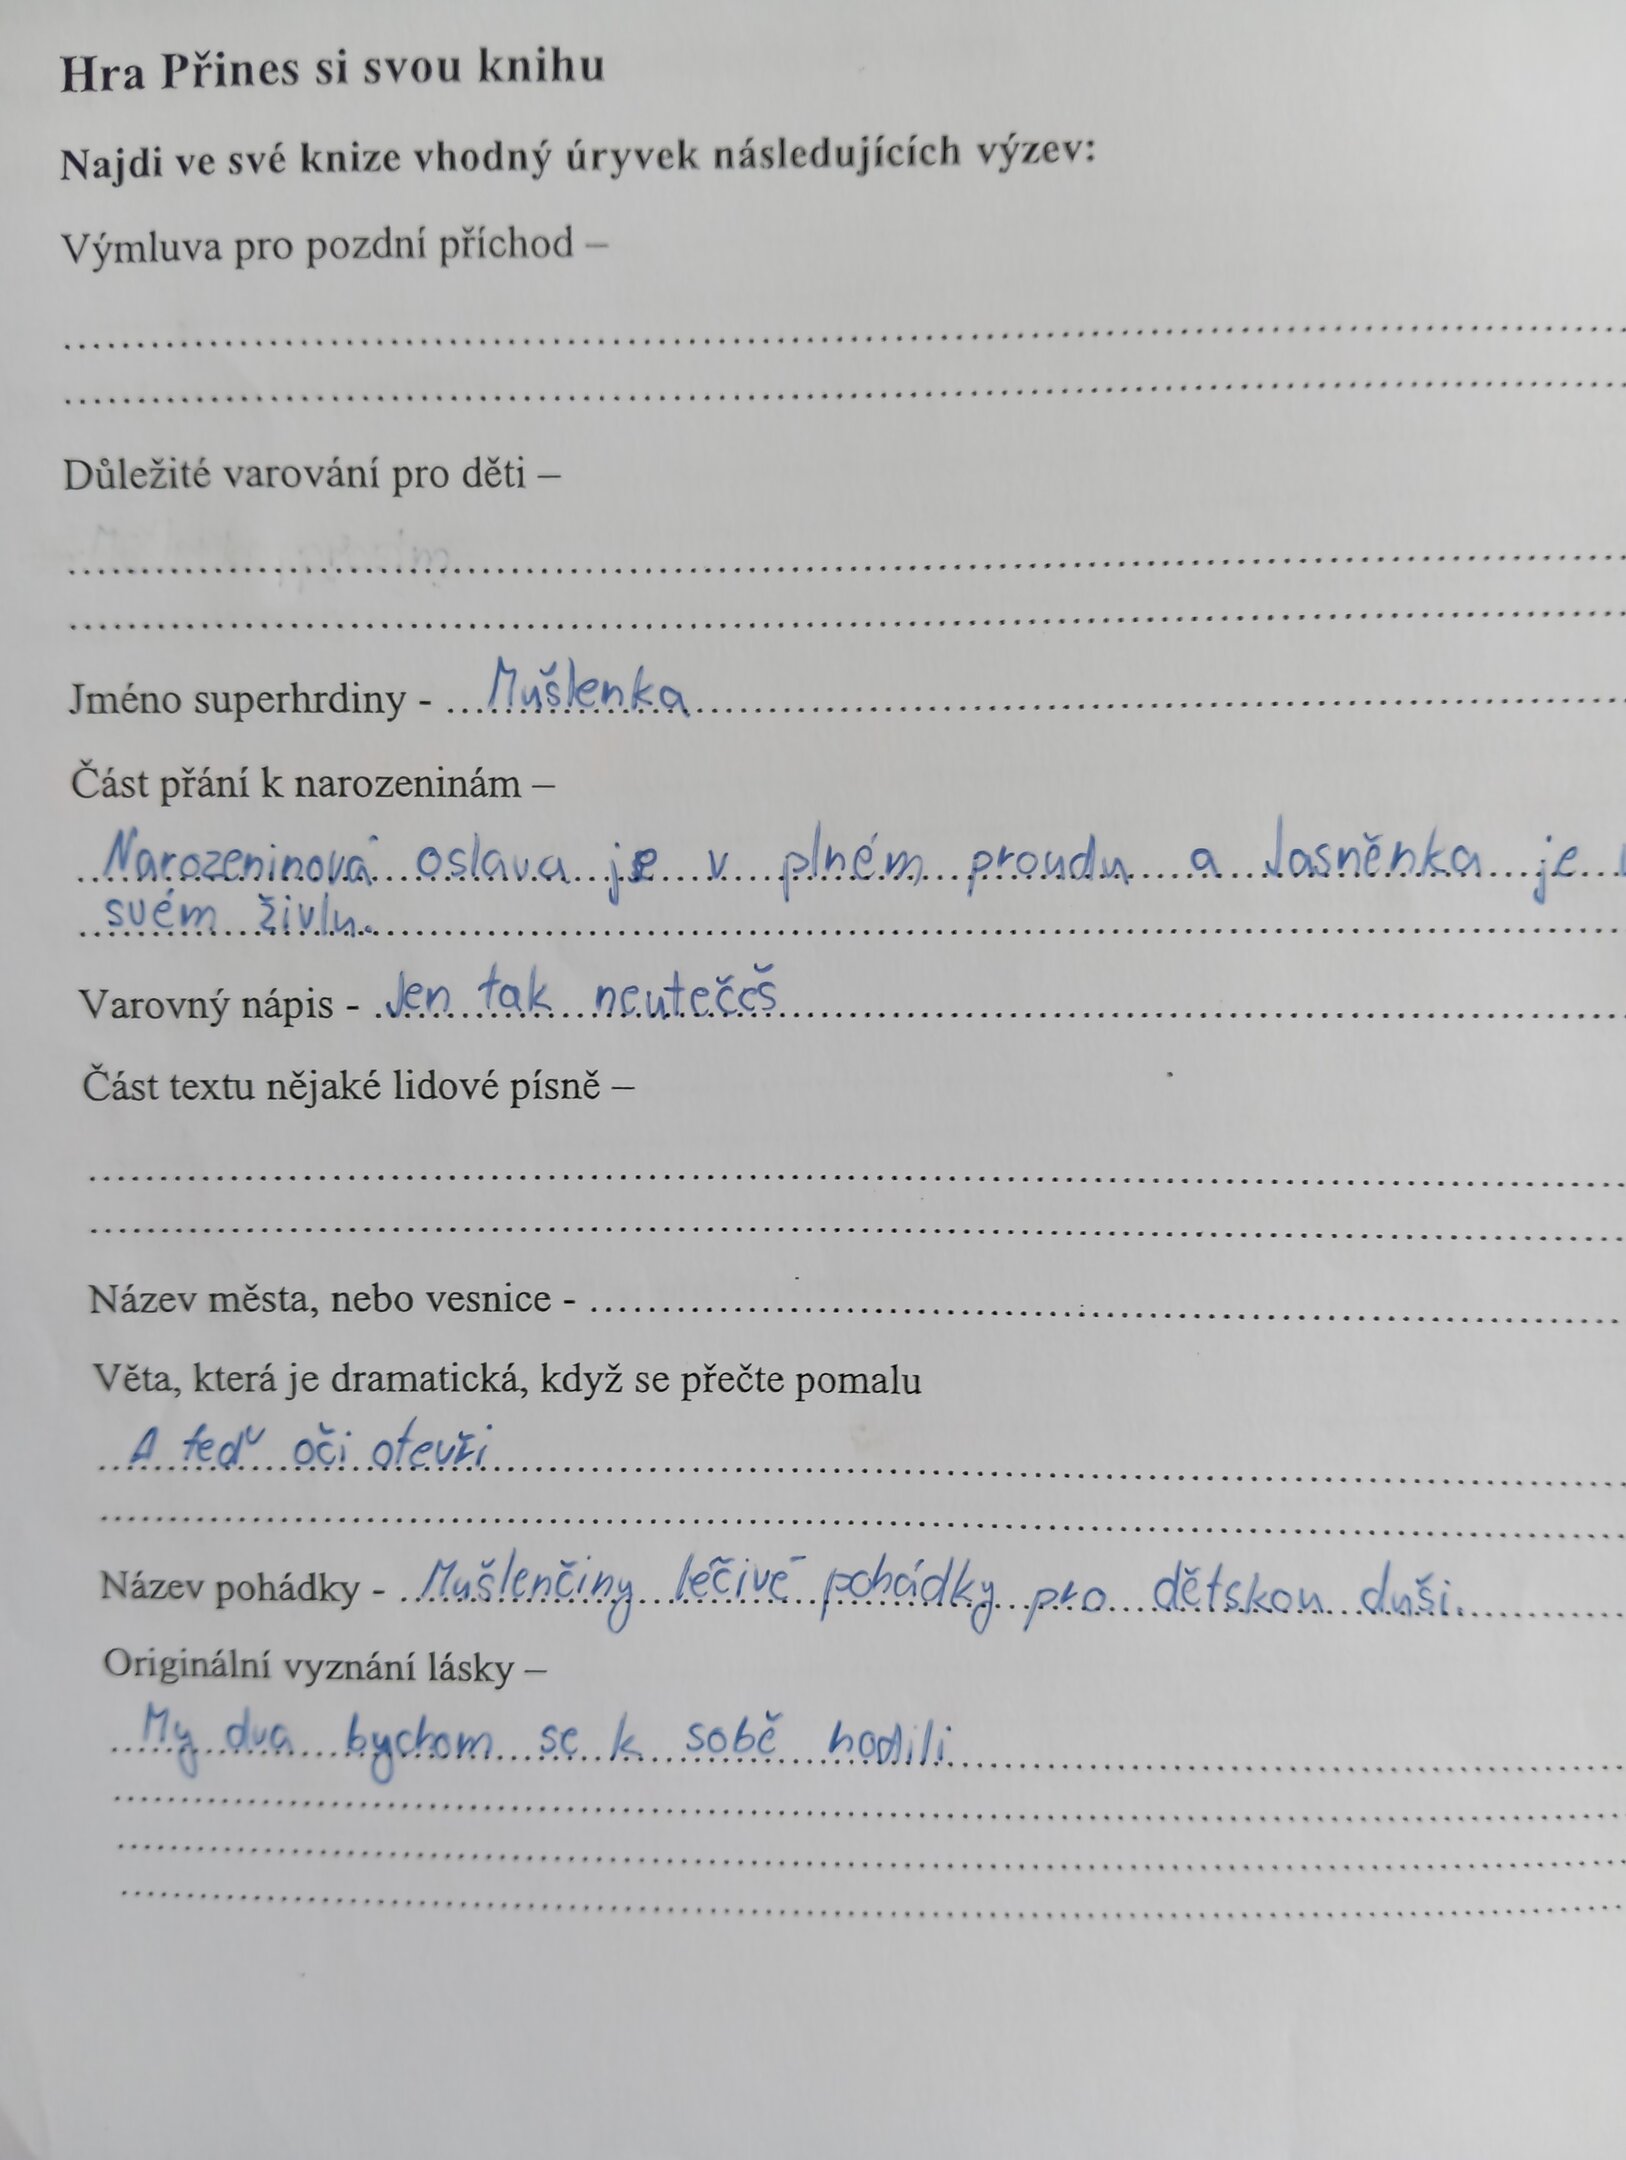 Hra Přines si svou knihu
Najdi ve své knize vhodný úryvek následujících výzev:
Výmluva pro pozdní příchod –
Důležité varování pro děti –
Jméno superhrdiny - Mušlenka
Část přání k narozeninám –
Narozeninová oslava je v plném proudu a Jasněnka je
svém živlu.
Varovný nápis - Jen tak neutečeš
Část textu nějaké lidové písně –
Název města, nebo vesnice -
Věta, která je dramatická, když se přečte pomalu
A teď oči otevři
Název pohádky - Mušlenčiny léčivé pohádky pro dětskou duši.
Originální vyznání lásky –
My dva bychom se k sobě hodili